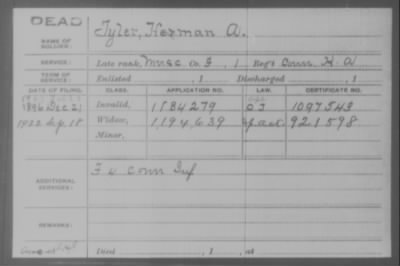 DEAD
NAME OF SOLDIER: Tyler, Herman A.
SERVICE: Late rank, Musc Co. F , 1 Reg't Conn. H A
TERM OF SERVICE: Enlisted , 1 Discharged , 1
DATE OF FILING. CLASS. APPLICATION NO. LAW. CERTIFICATE NO.
1896 Dec 21 Invalid, 1184279 O J 1097543
1922 Sep 18 Widow, 1,194,639 921598
Minor,
ADDITIONAL SERVICES: F 4 Conn Inf
REMARKS:
Died , 1 , at